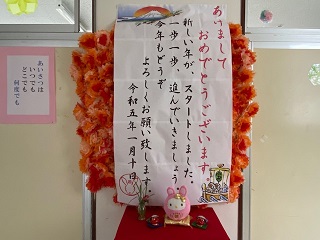 あけまして
おめでとうございます。
新しい年が、スタートしました。
一歩一歩、進んでいきましょう
今年もどうぞ
よろしくお願い致します。
令和五年一月十日
あいさつは
いつでも
どこでも
何度でも